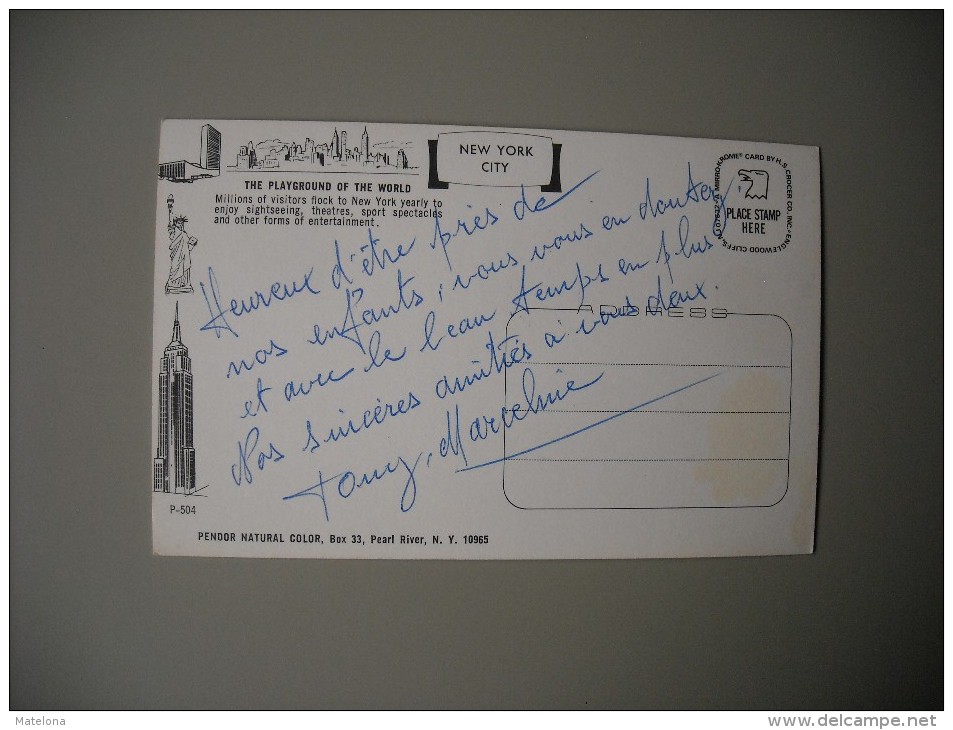 NEW YORK
CITY
THE PLAYGROUND OF THE WORLD
Millions of visitors flock to New York yearly to
enjoy sightseeing, theatres, sport spectacles
and other forms of entertainment.
MIRRO-KROME® CARD BY H.S. CROCER CO., INC. ENGLEWOOD CLIFFS, N.J.
PLACE STAMP
HERE
ADDRESS
Heureux d'être près de
nos enfants, vous vous en doutez,
et avec le beau temps en plus
Nos sincères amitiés à vous deux.
Tony, Marceline
P-504
PENDOR NATURAL COLOR, Box 33, Pearl River, N. Y. 10965
Matelona
www.delcampe.net